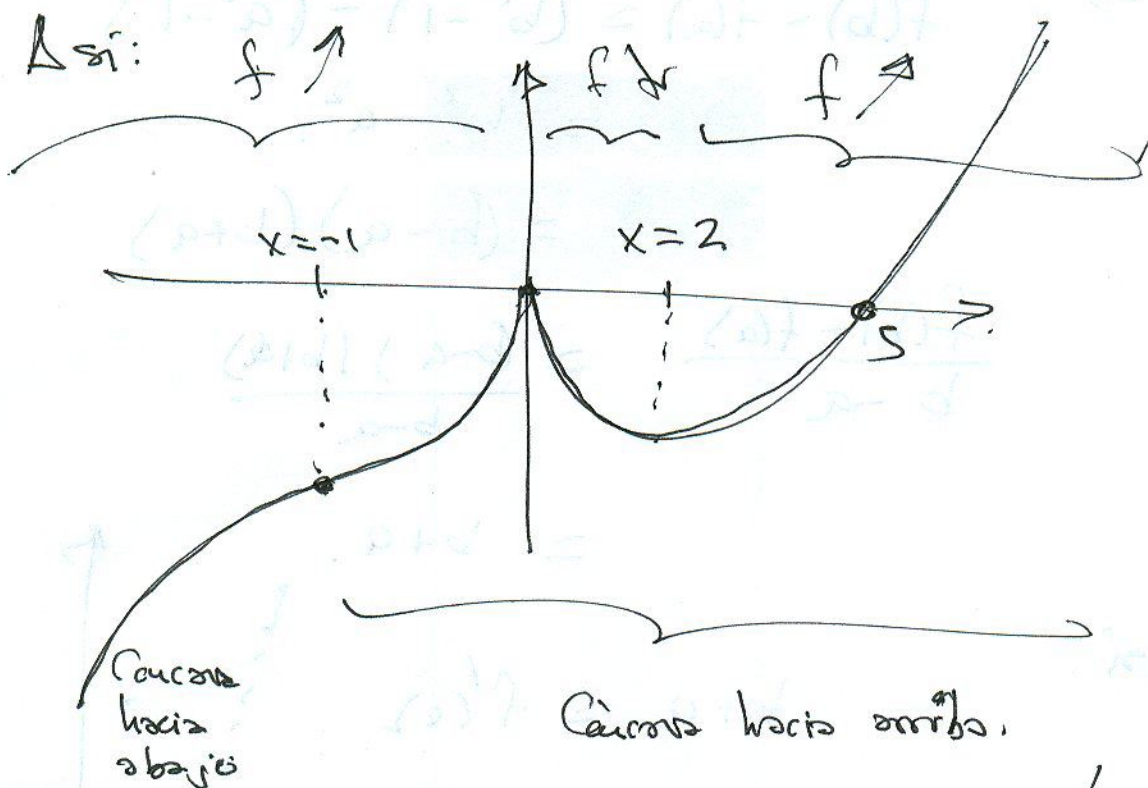 Así:
f ↗ f ↘ f ↗
x=-1 x=2
5
Cóncava
hacia
abajo
Cóncava hacia arriba.